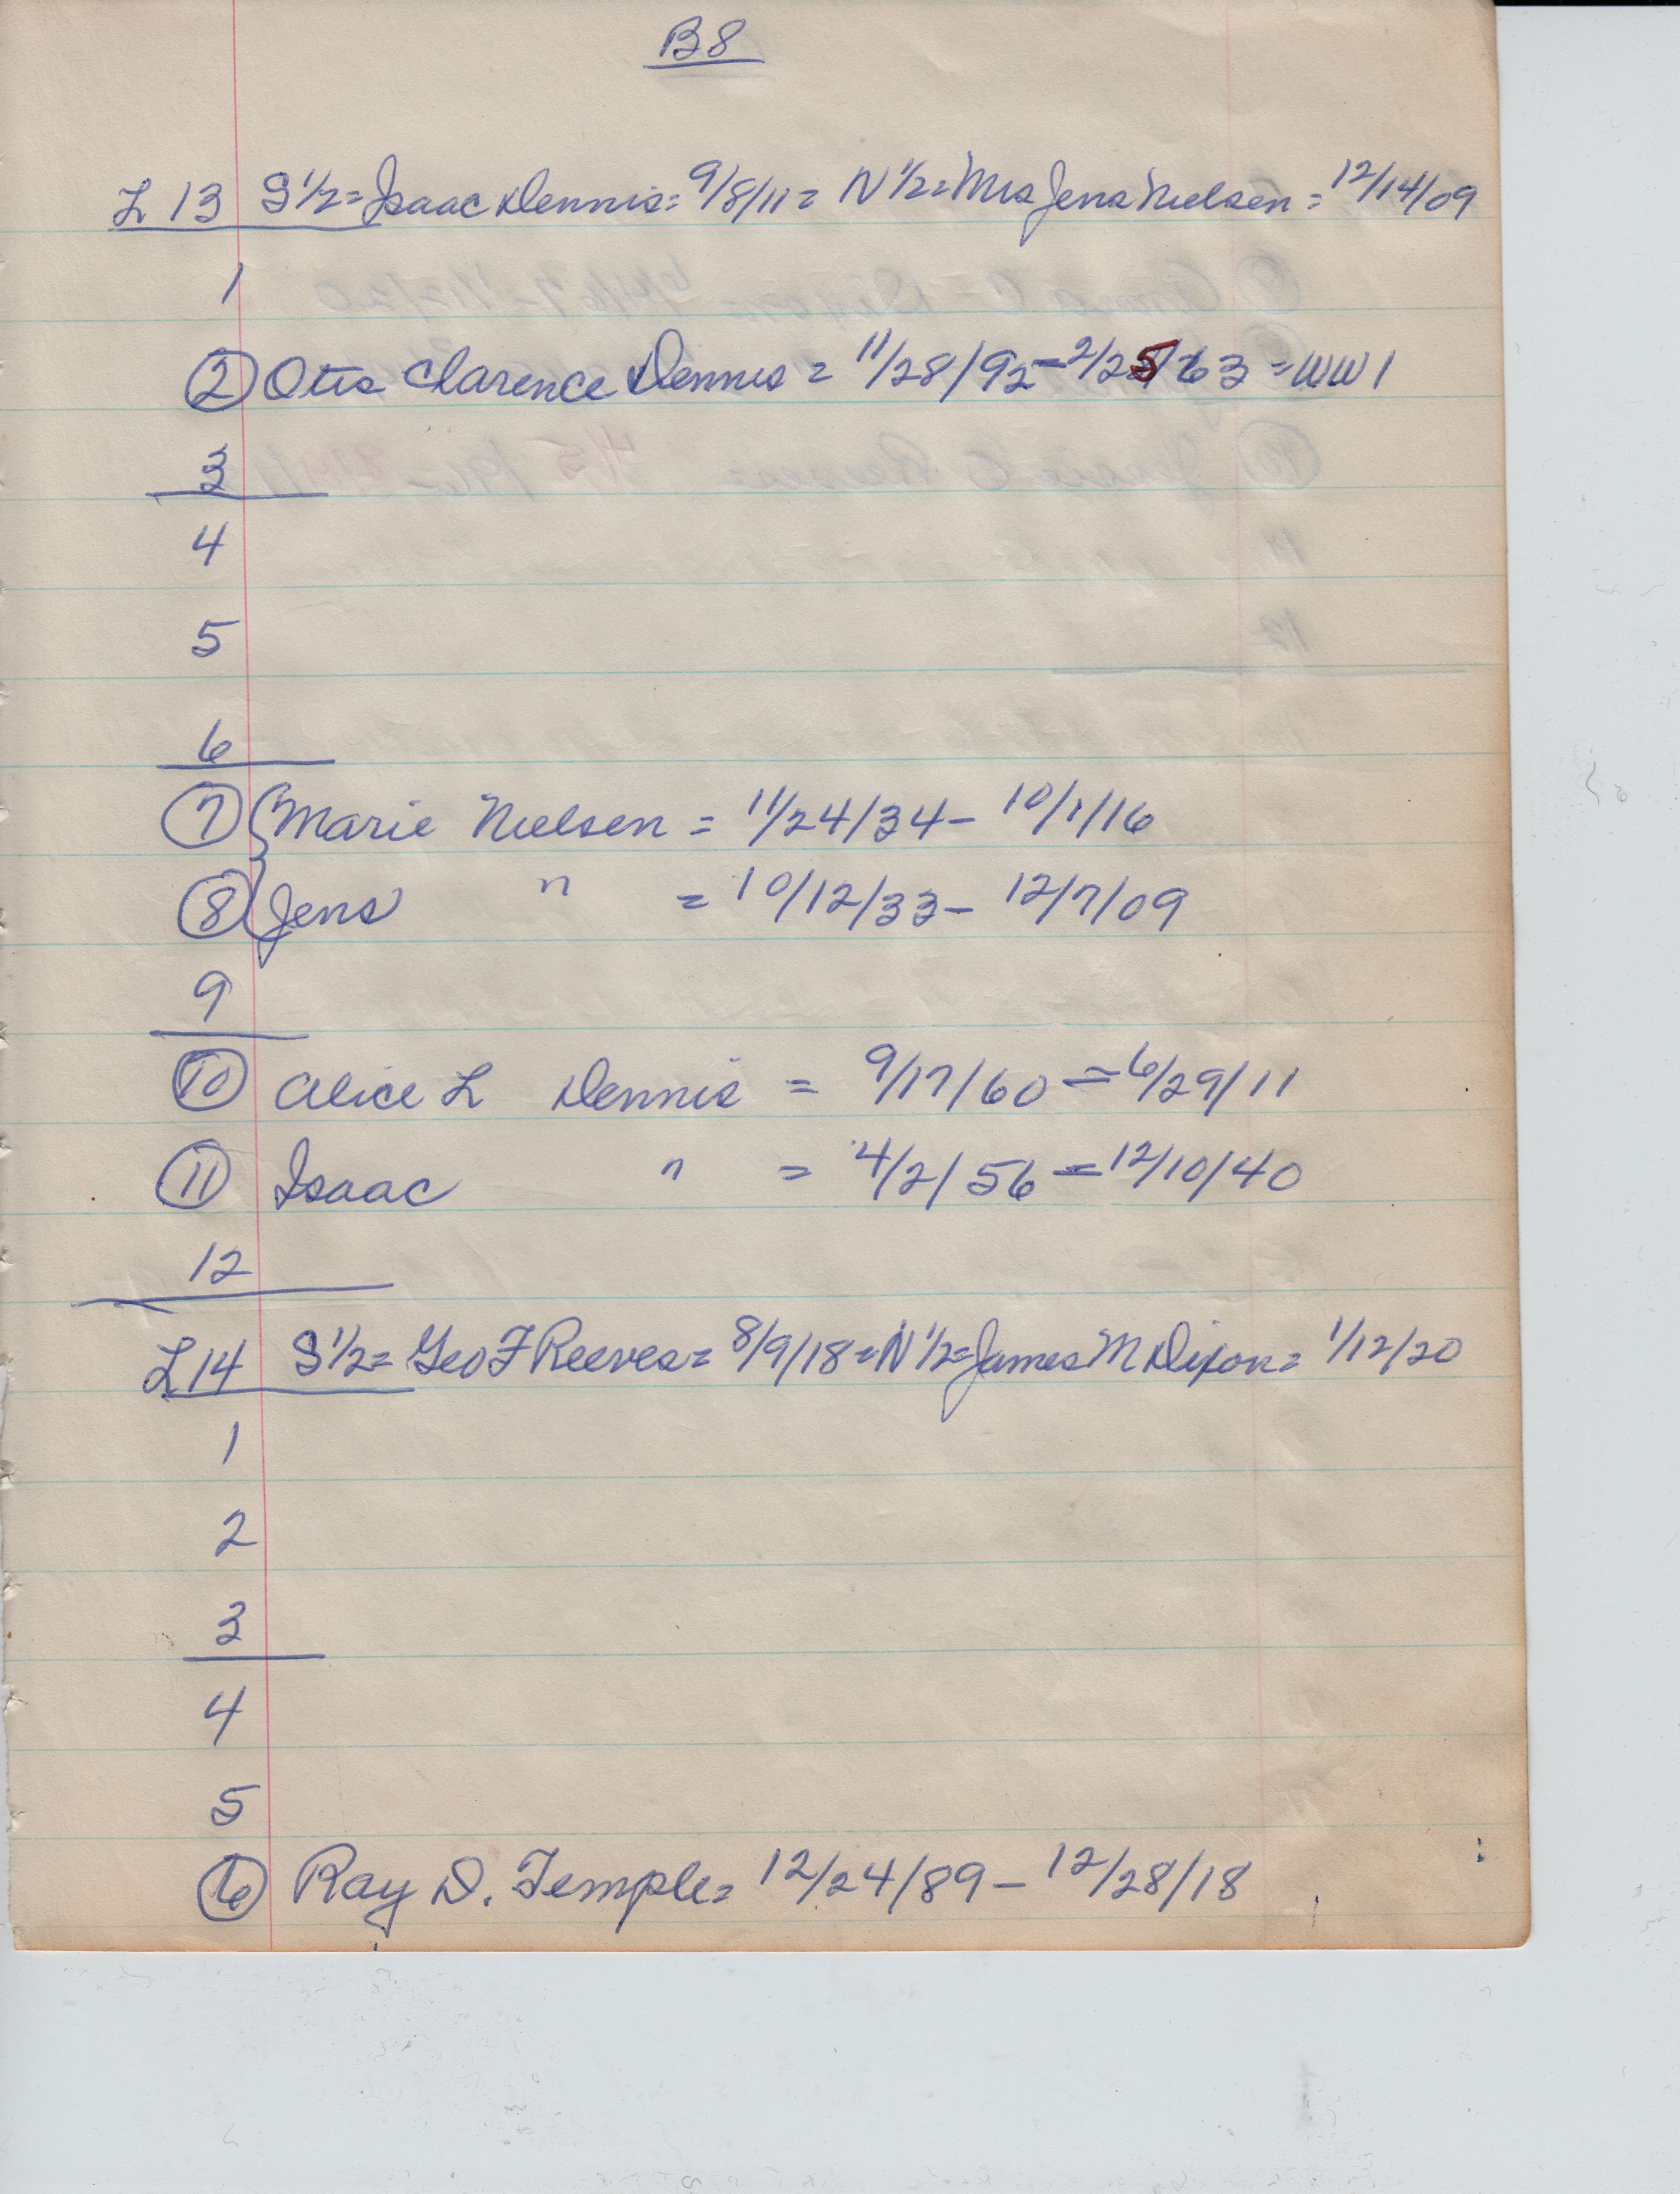 B8
L 13 S 1/2 = Isaac Dennis = 9/8/11 = N 1/2 = Mrs Jens Nielsen = 12/14/09
1
2 Otis Clarence Dennis = 11/28/92 - 2/25/63 = WW1
3
4
5
6
7 Marie Nielsen = 11/24/34 - 10/1/16
8 Jens " = 10/12/33 - 12/7/09
9
10 Alice L Dennis = 9/17/60 = 6/29/11
11 Isaac " = 4/2/56 = 12/10/40
12
L14 S 1/2 = Geo F Reeves = 8/9/18 = N 1/2 = James M Dixon = 1/12/20
1
2
3
4
5
6 Ray D. Temple = 12/24/89 - 12/28/18